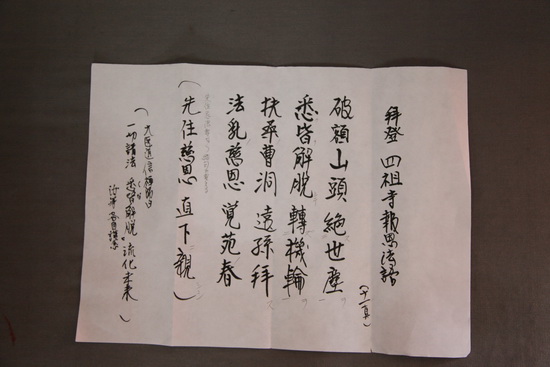 拜登 四祖寺報恩法語
(十一真)
破額山頭絶世塵
悉皆解脱轉機輪
扶桑曹洞遠孫拜
法乳慈恩覚苑春
(先住慈恩直下親)
(大医道信禅師曰
一切諸法 悉皆解脱。